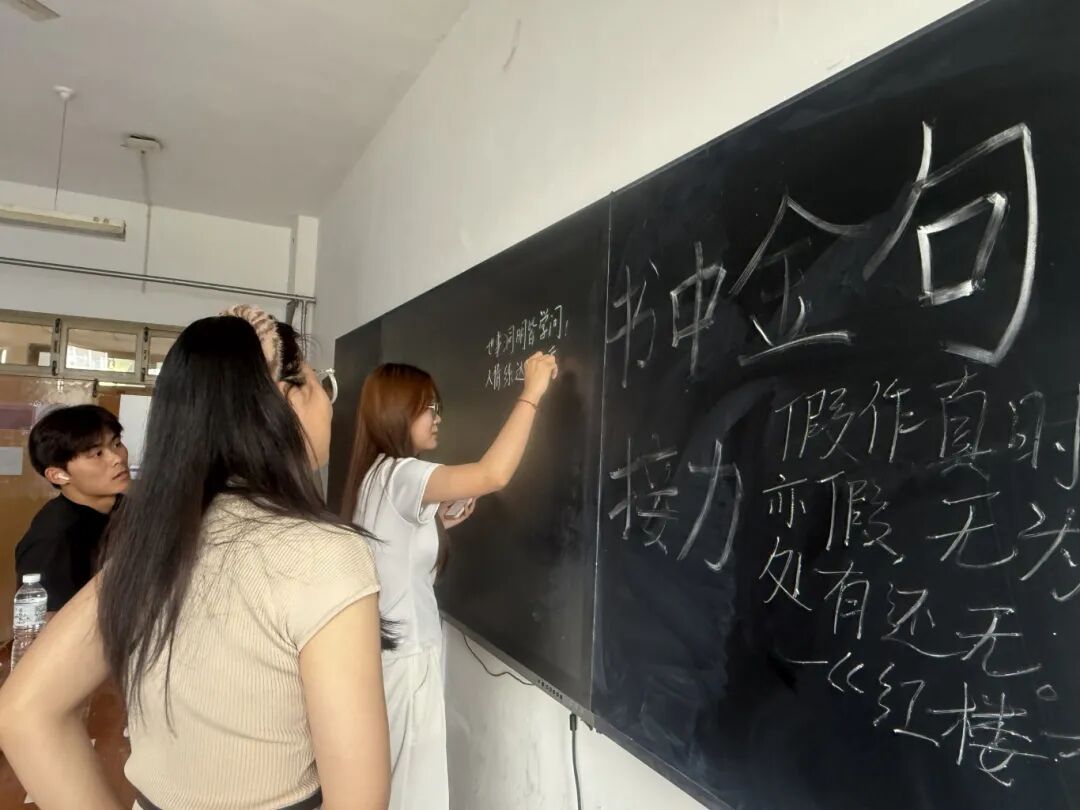 书中金句
接力
假作真时
亦假，无为
处有还无。
—《红楼
世事洞明皆学问，
人情练达